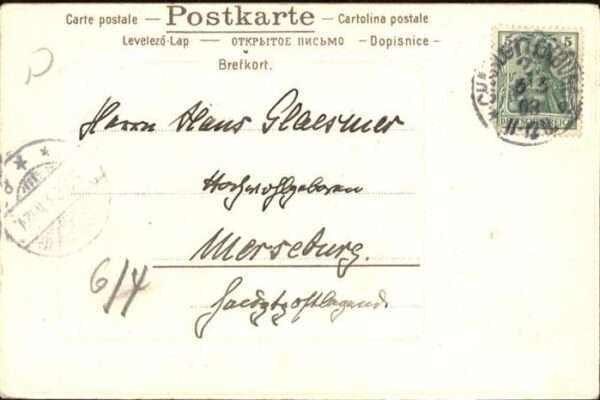 Carte postale — Postkarte — Cartolina postale
Levelező-Lap — ОТКРЫТОЕ ПИСЬМО — Dopisnice —
Brefkort.
5 5
Herrn Hans Glaesmer
Hochwohlgeboren
Merseburg.
Hauptpostlagernd.
6/4